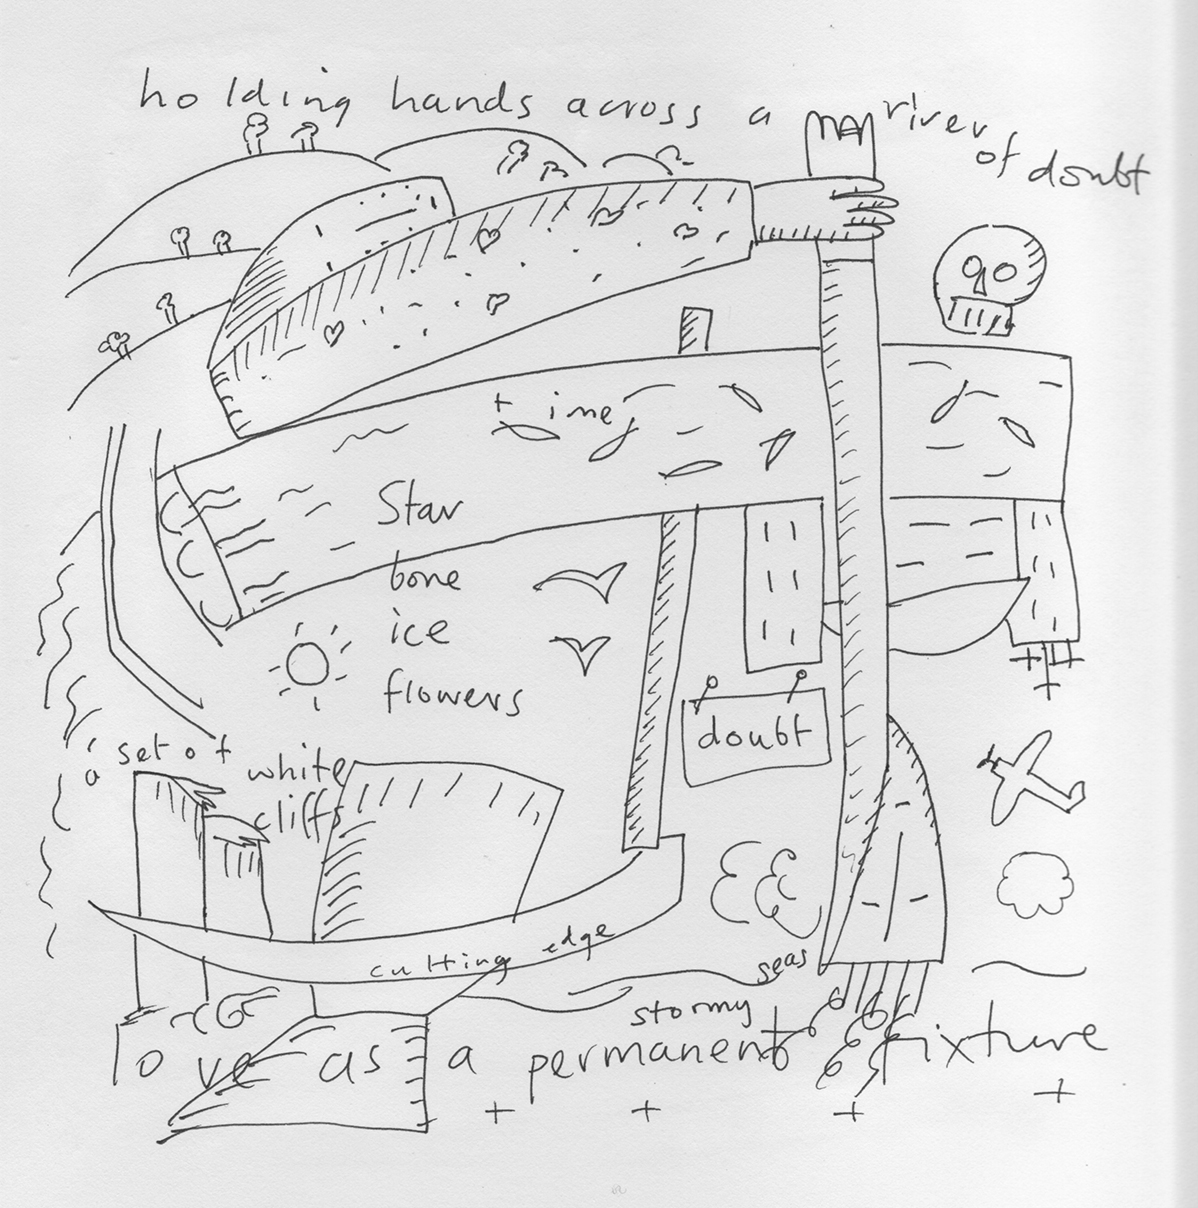 holding hands across a river of doubt
time
Star
bone
ice
flowers
doubt
a set of
white
cliffs
cutting edge
stormy seas
love as a permanent fixture